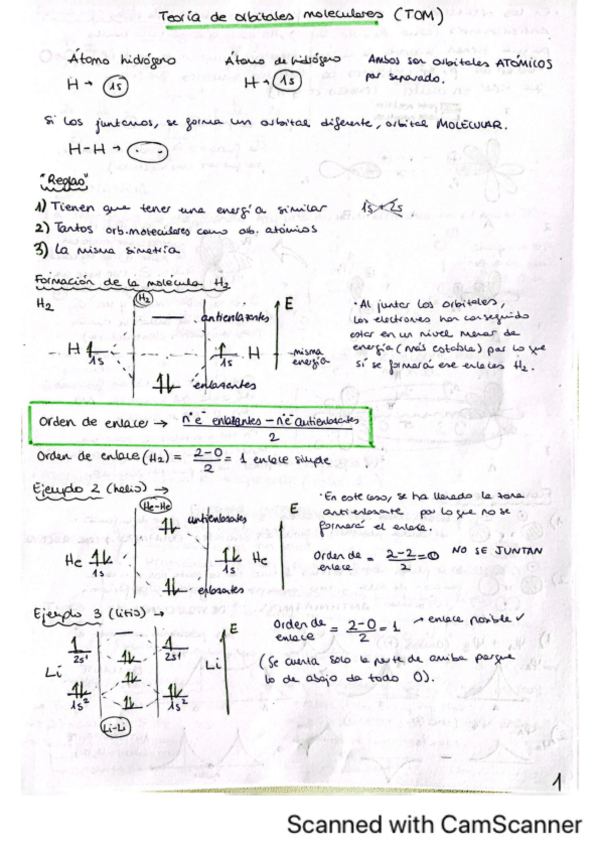 Teoría de orbitales moleculares (TOM)
Átomo hidrógeno
H → 1s
Átomo de hidrógeno
H → 1s
Ambos son orbitales ATÓMICOS
por separado.
Si los juntamos, se forma un orbital diferente, orbital MOLECULAR.
H-H →
"Reglas"
1) Tienen que tener una energía similar 1s 2s
2) Tantos orb. moleculares como orb. atómicos
3) La misma simetría
Formación de la molécula H₂
H₂
H₂
E
antienlazantes
H 1s
1s H
misma
energía
enlazantes
· Al juntar los orbitales,
los electrones han conseguido
estar en un nivel menor de
energía (más estable) por lo que
sí se formará ese enlace H₂.
Orden de enlace → nºe⁻ enlazantes - nºe⁻ antienlazantes
2
Orden de enlace (H₂) = 2-0 / 2 = 1 enlace simple
Ejemplo 2 (helio) →
He-He
E
antienlazantes
He 1s
1s He
enlazantes
· En este caso, se ha llenado la zona
antienlazante por lo que no se
formará el enlace.
Orden de enlace = 2-2 / 2 = 0 NO SE JUNTAN
Ejemplo 3 (litio) →
E
2s¹
2s¹
Li
Li
1s²
1s²
Li-Li
Orden de enlace = 2-0 / 2 = 1 → enlace posible ✓
(Se cuenta solo la parte de arriba porque
lo de abajo da todo 0).
1
Scanned with CamScanner